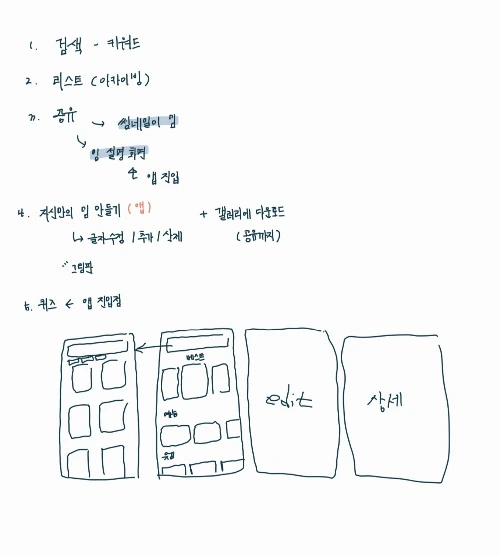 1. 검색 - 키워드
2. 리스트 (아카이빙)
3. 공유 → 썸네일이 밈
↘ 밈 설명 화면
↰ 앱 진입
4. 자신만의 밈 만들기 (앱) + 갤러리에 다운로드
↳ 글자수정 / 추가 / 삭제 (공유까지)
그림판
5. 퀴즈 ← 앱 진입점
베스트
예능
edit
상세